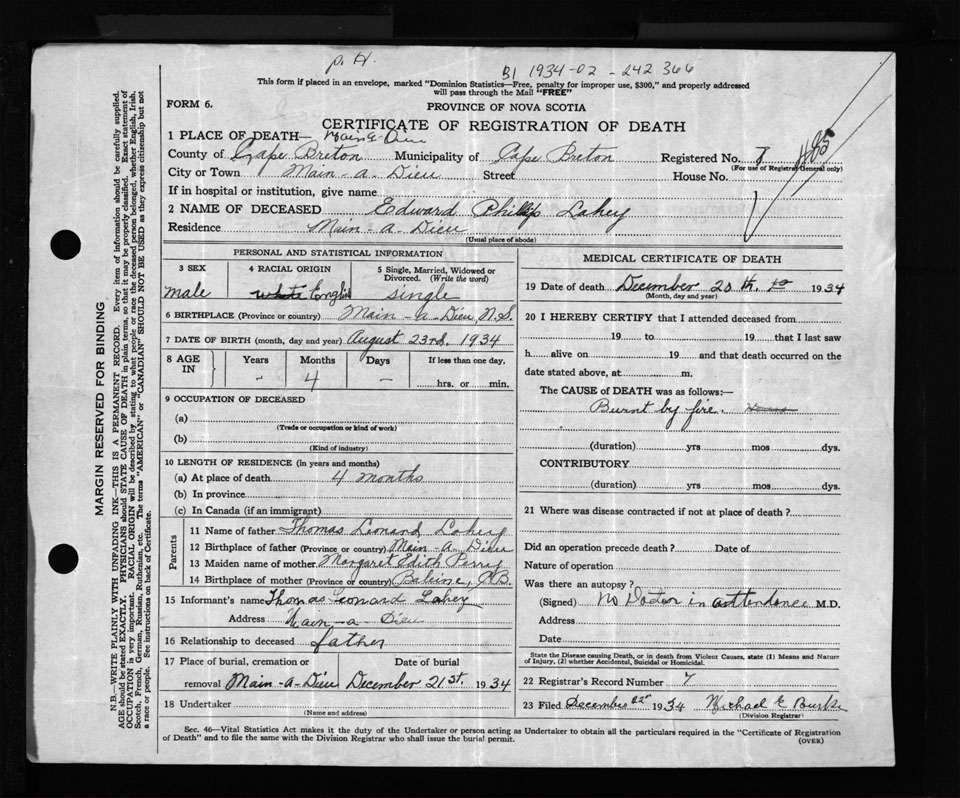 P. H.
B1 1934-02-242366
This form if placed in an envelope, marked "Dominion Statistics—Free, penalty for improper use, $300," and properly addressed
will pass through the Mail "FREE"
FORM 6.
PROVINCE OF NOVA SCOTIA
CERTIFICATE OF REGISTRATION OF DEATH
1 PLACE OF DEATH— Main-a-Dieu
County of Cape Breton Municipality of Cape Breton Registered No. 7
(For use of Registrar General only)
485
City or Town Main-a-Dieu Street House No.
If in hospital or institution, give name
2 NAME OF DECEASED Edward Phillip Lahey
Residence Main-a-Dieu
(Usual place of abode)
PERSONAL AND STATISTICAL INFORMATION
3 SEX 4 RACIAL ORIGIN 5 Single, Married, Widowed or
Divorced. (Write the word)
male white English single
6 BIRTHPLACE (Province or country) Main-a-Dieu, N.S.
7 DATE OF BIRTH (month, day and year) August 23rd, 1934
8 AGE IN Years Months Days If less than one day.
- 4 - hrs. or min.
9 OCCUPATION OF DECEASED
(a)
(Trade or occupation or kind of work)
(b)
(Kind of industry)
10 LENGTH OF RESIDENCE (in years and months)
(a) At place of death 4 months
(b) In province
(c) In Canada (if an immigrant)
Parents
11 Name of father Thomas Leonard Lahey
12 Birthplace of father (Province or country) Main-a-Dieu
13 Maiden name of mother Margaret Edith Perry
14 Birthplace of mother (Province or country) Baleine, C.B.
15 Informant's name Thomas Leonard Lahey
Address Main-a-Dieu
16 Relationship to deceased father
17 Place of burial, cremation or Date of burial
removal Main-a-Dieu December 21st 1934
18 Undertaker
(Name and address)
MEDICAL CERTIFICATE OF DEATH
19 Date of death December 20th 1934
(Month, day and year)
20 I HEREBY CERTIFY that I attended deceased from
19 to 19 that I last saw
h alive on 19 and that death occurred on the
date stated above, at m.
The CAUSE of DEATH was as follows:
Burnt by fire.
(duration) yrs mos dys.
CONTRIBUTORY
(duration) yrs mos dys.
21 Where was disease contracted if not at place of death?
Did an operation precede death? Date of
Nature of operation
Was there an autopsy?
(Signed) No Doctor in attendence M.D.
Address
Date
State the Disease causing Death, or in death from Violent Causes, state (1) Means and Nature
of Injury, (2) whether Accidental, Suicidal or Homicidal.
22 Registrar's Record Number 7
23 Filed December 22 1934 Michael E Burke
(Division Registrar)
Sec. 46—Vital Statistics Act makes it the duty of the Undertaker or person acting as Undertaker to obtain all the particulars required in the "Certificate of Registration
of Death" and to file the same with the Division Registrar who shall issue the burial permit.
(OVER)
MARGIN RESERVED FOR BINDING
N.B.—WRITE PLAINLY WITH UNFADING INK—THIS IS A PERMANENT RECORD. Every item of information should be carefully supplied.
AGE should be stated EXACTLY. PHYSICIANS should STATE CAUSE OF DEATH in plain terms, so that it may be properly classified. Exact statement of
OCCUPATION is very important. RACIAL ORIGIN will be described by stating to what people or race the deceased person belonged, whether English, Irish,
Scotch, French, German, Russian, Ruthenian, etc. The terms "AMERICAN" or "CANADIAN" SHOULD NOT BE USED as they express citizenship but not
a race or people. See instructions on back of Certificate.